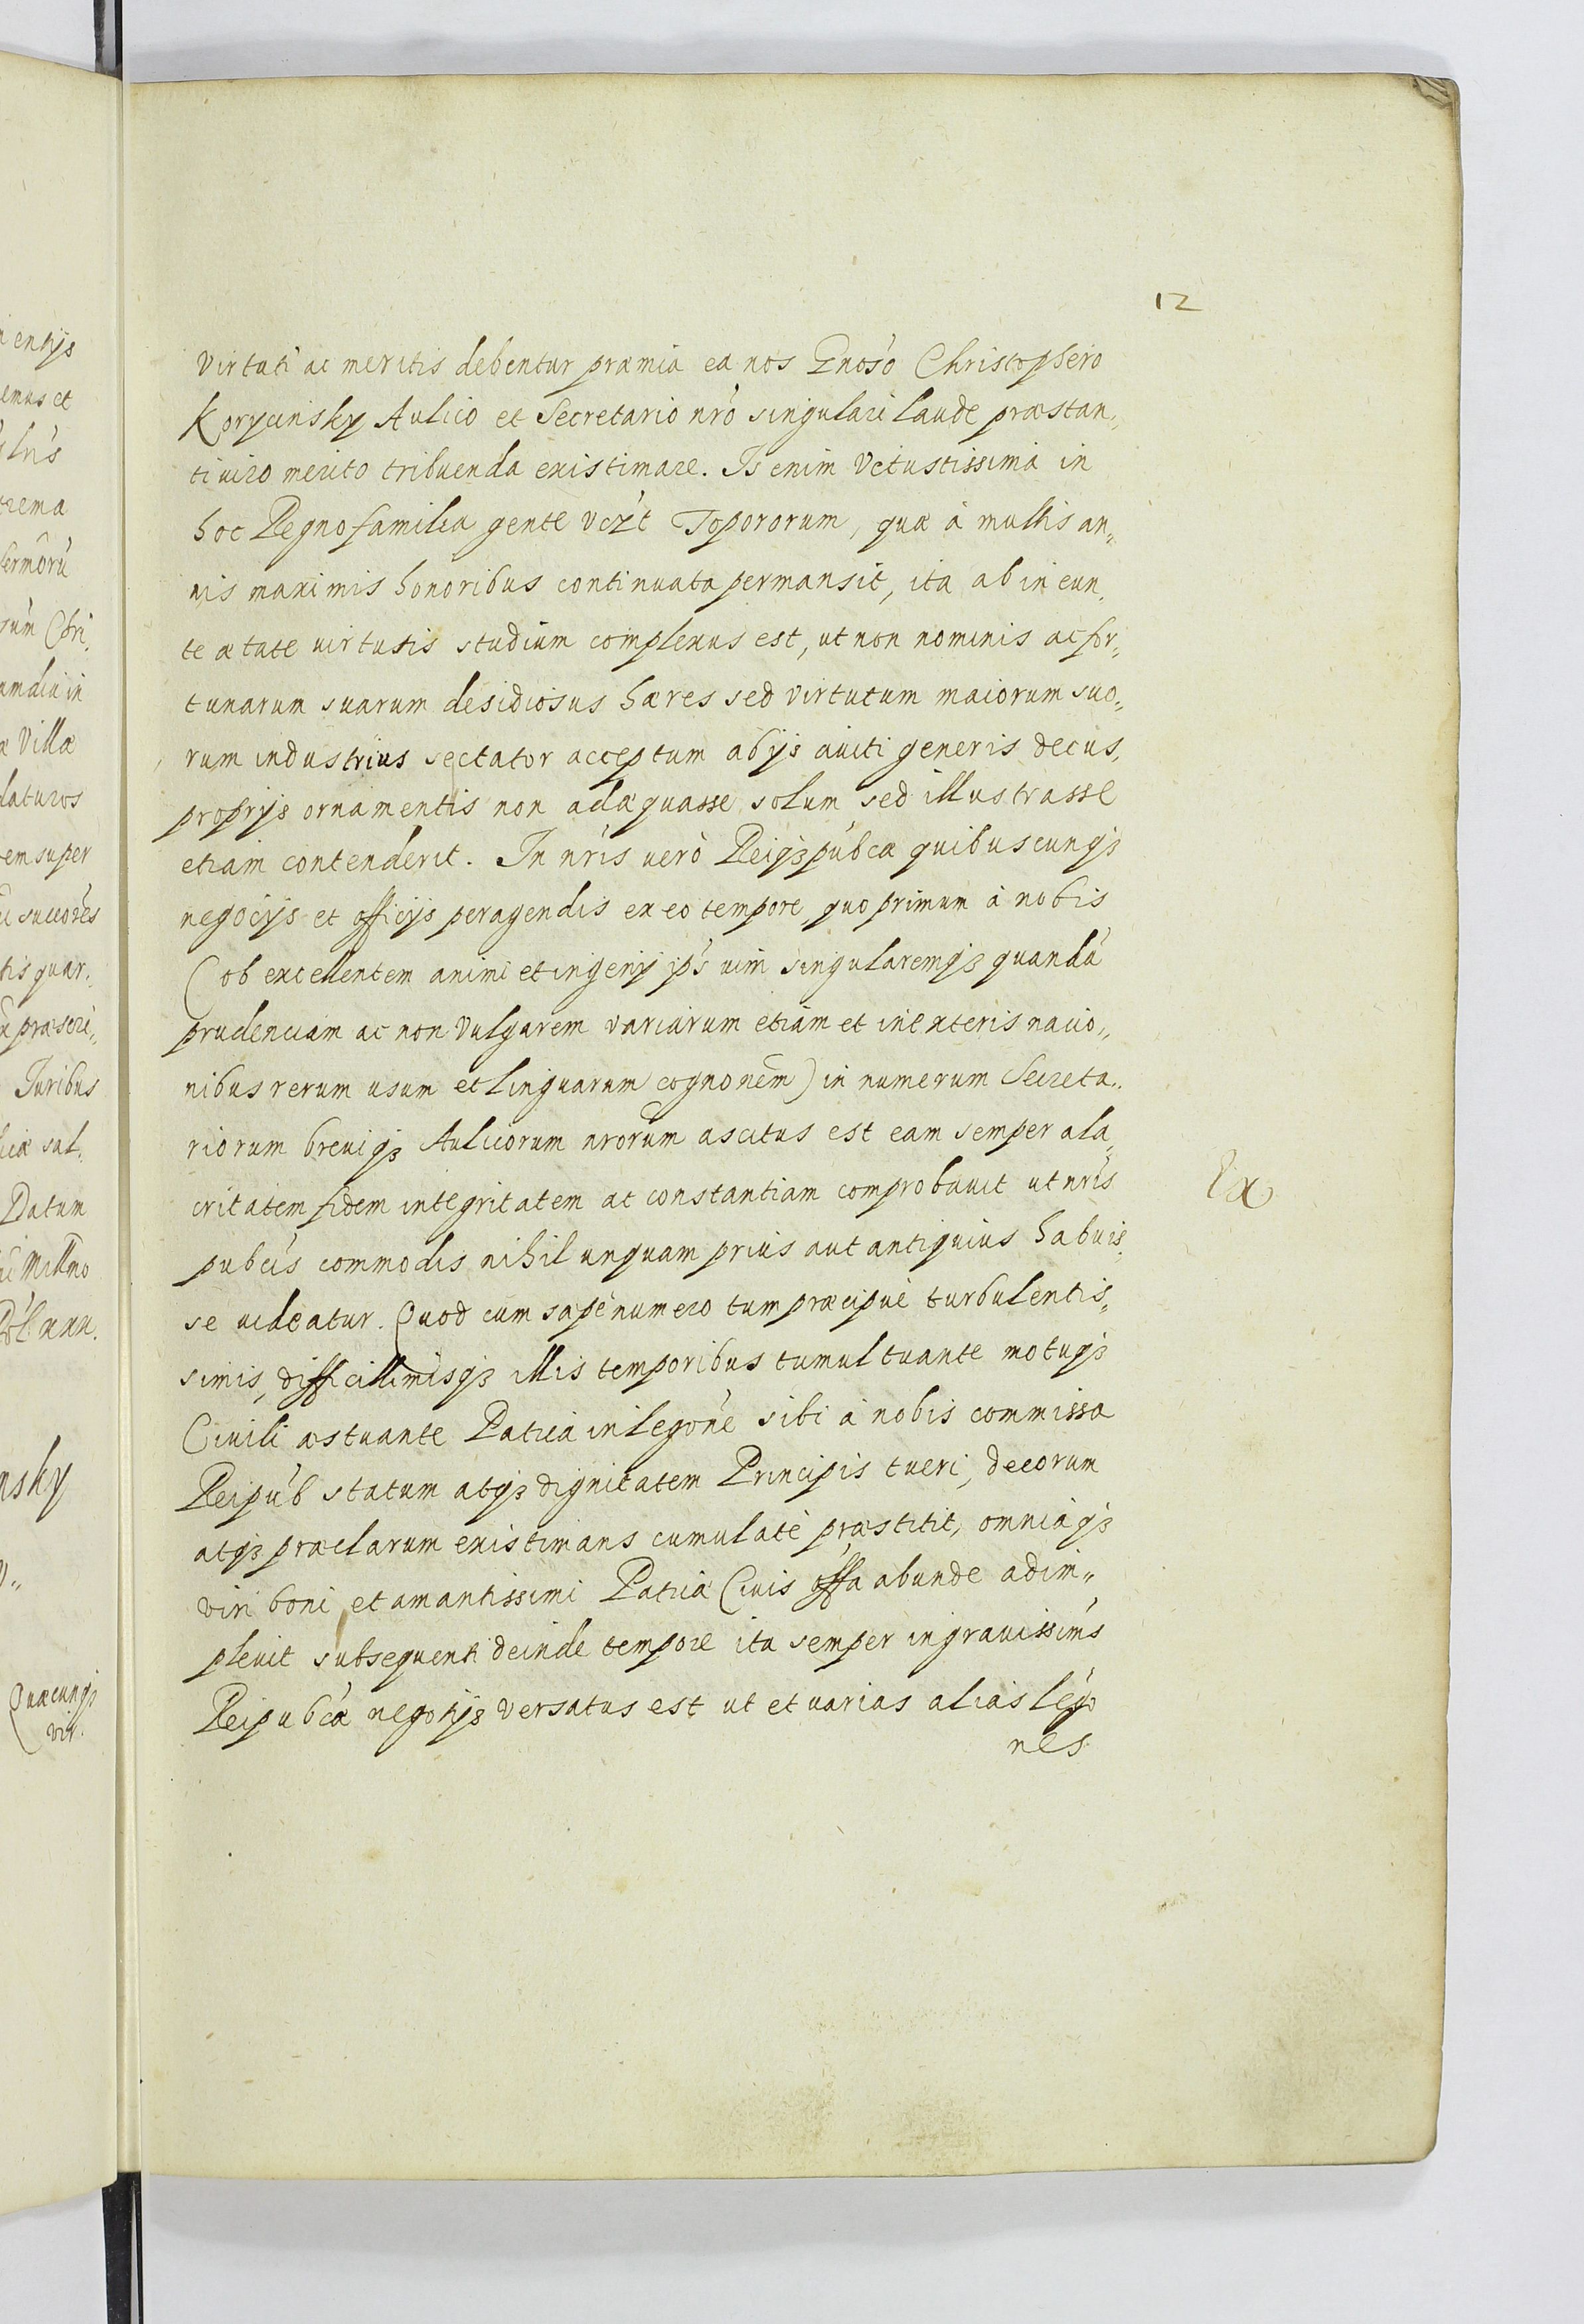 12
virtuti ac meritis debentur præmia ea nos Gnoso Christophero
Korycinsky Aulico et Secretario nro singulari laude præstan„
ti viro merito tribuenda existimare. Is enim Vetustissima in
hoc Regno familia gente Topororum, quæ à multis an„
nis maximis honoribus continuata permansit, ita ab in eun„
te ætate virtutis studium complexus est, ut non nominis ac for„
tunarum suarum desidiosus hæres sed virtutum maiorum suo„
rum industrius sectator acceptum ab ijs auiti generis decus,
proprijs ornamentis non adæquasse solum sed illustrasse
etiam contenderit. In nris uerò Reiqз pubcæ quibuscunqз
negocijs et officijs peragendis ex eo tempore, quo primum à nobis
(ob excellentem animi et ingenij ips uim singularemqз quandã
prudenciam ac non Vulgarem variarum etiam et in exteris nacio„
nibus rerum usum et linguarum cognonem) in numerum Secreta„
riorum breuiqз Aulicorum nrorum ascitus est eam semper ala„
critatem fidem integritatem ac constantiam comprobauit ut nris
pubcis commodis nihil unquam prius aut antiquius habuis„
se uideatur. Quod cum sæpè numero tum præcipuè turbulentis„
simis, difficillimisqз illis temporibus tumultuante motuqз
Ciuili æstuante Patria in legone sibi à nobis commissa
Reipub statum atqз dignitatem Principis tueri, decorum
atqз præclarum existimans cumulatè præstitit, omniaqз
viri boni et amantissimi Patriæ Ciuis offa abunde adim„
pleuit subsequenti deinde tempore ita semper in grauissims
Reipubcæ negotijs versatus est ut et uarias alias lego
nes
entijs
emus et
lris
rema
sermorũ
sum Chri„
amdiu in
Villæ
daturos
em super
succores
tis quar„
præscri„
Juribus
sal„
Datum
Millmo
nsky
Quæcunqз
vir.